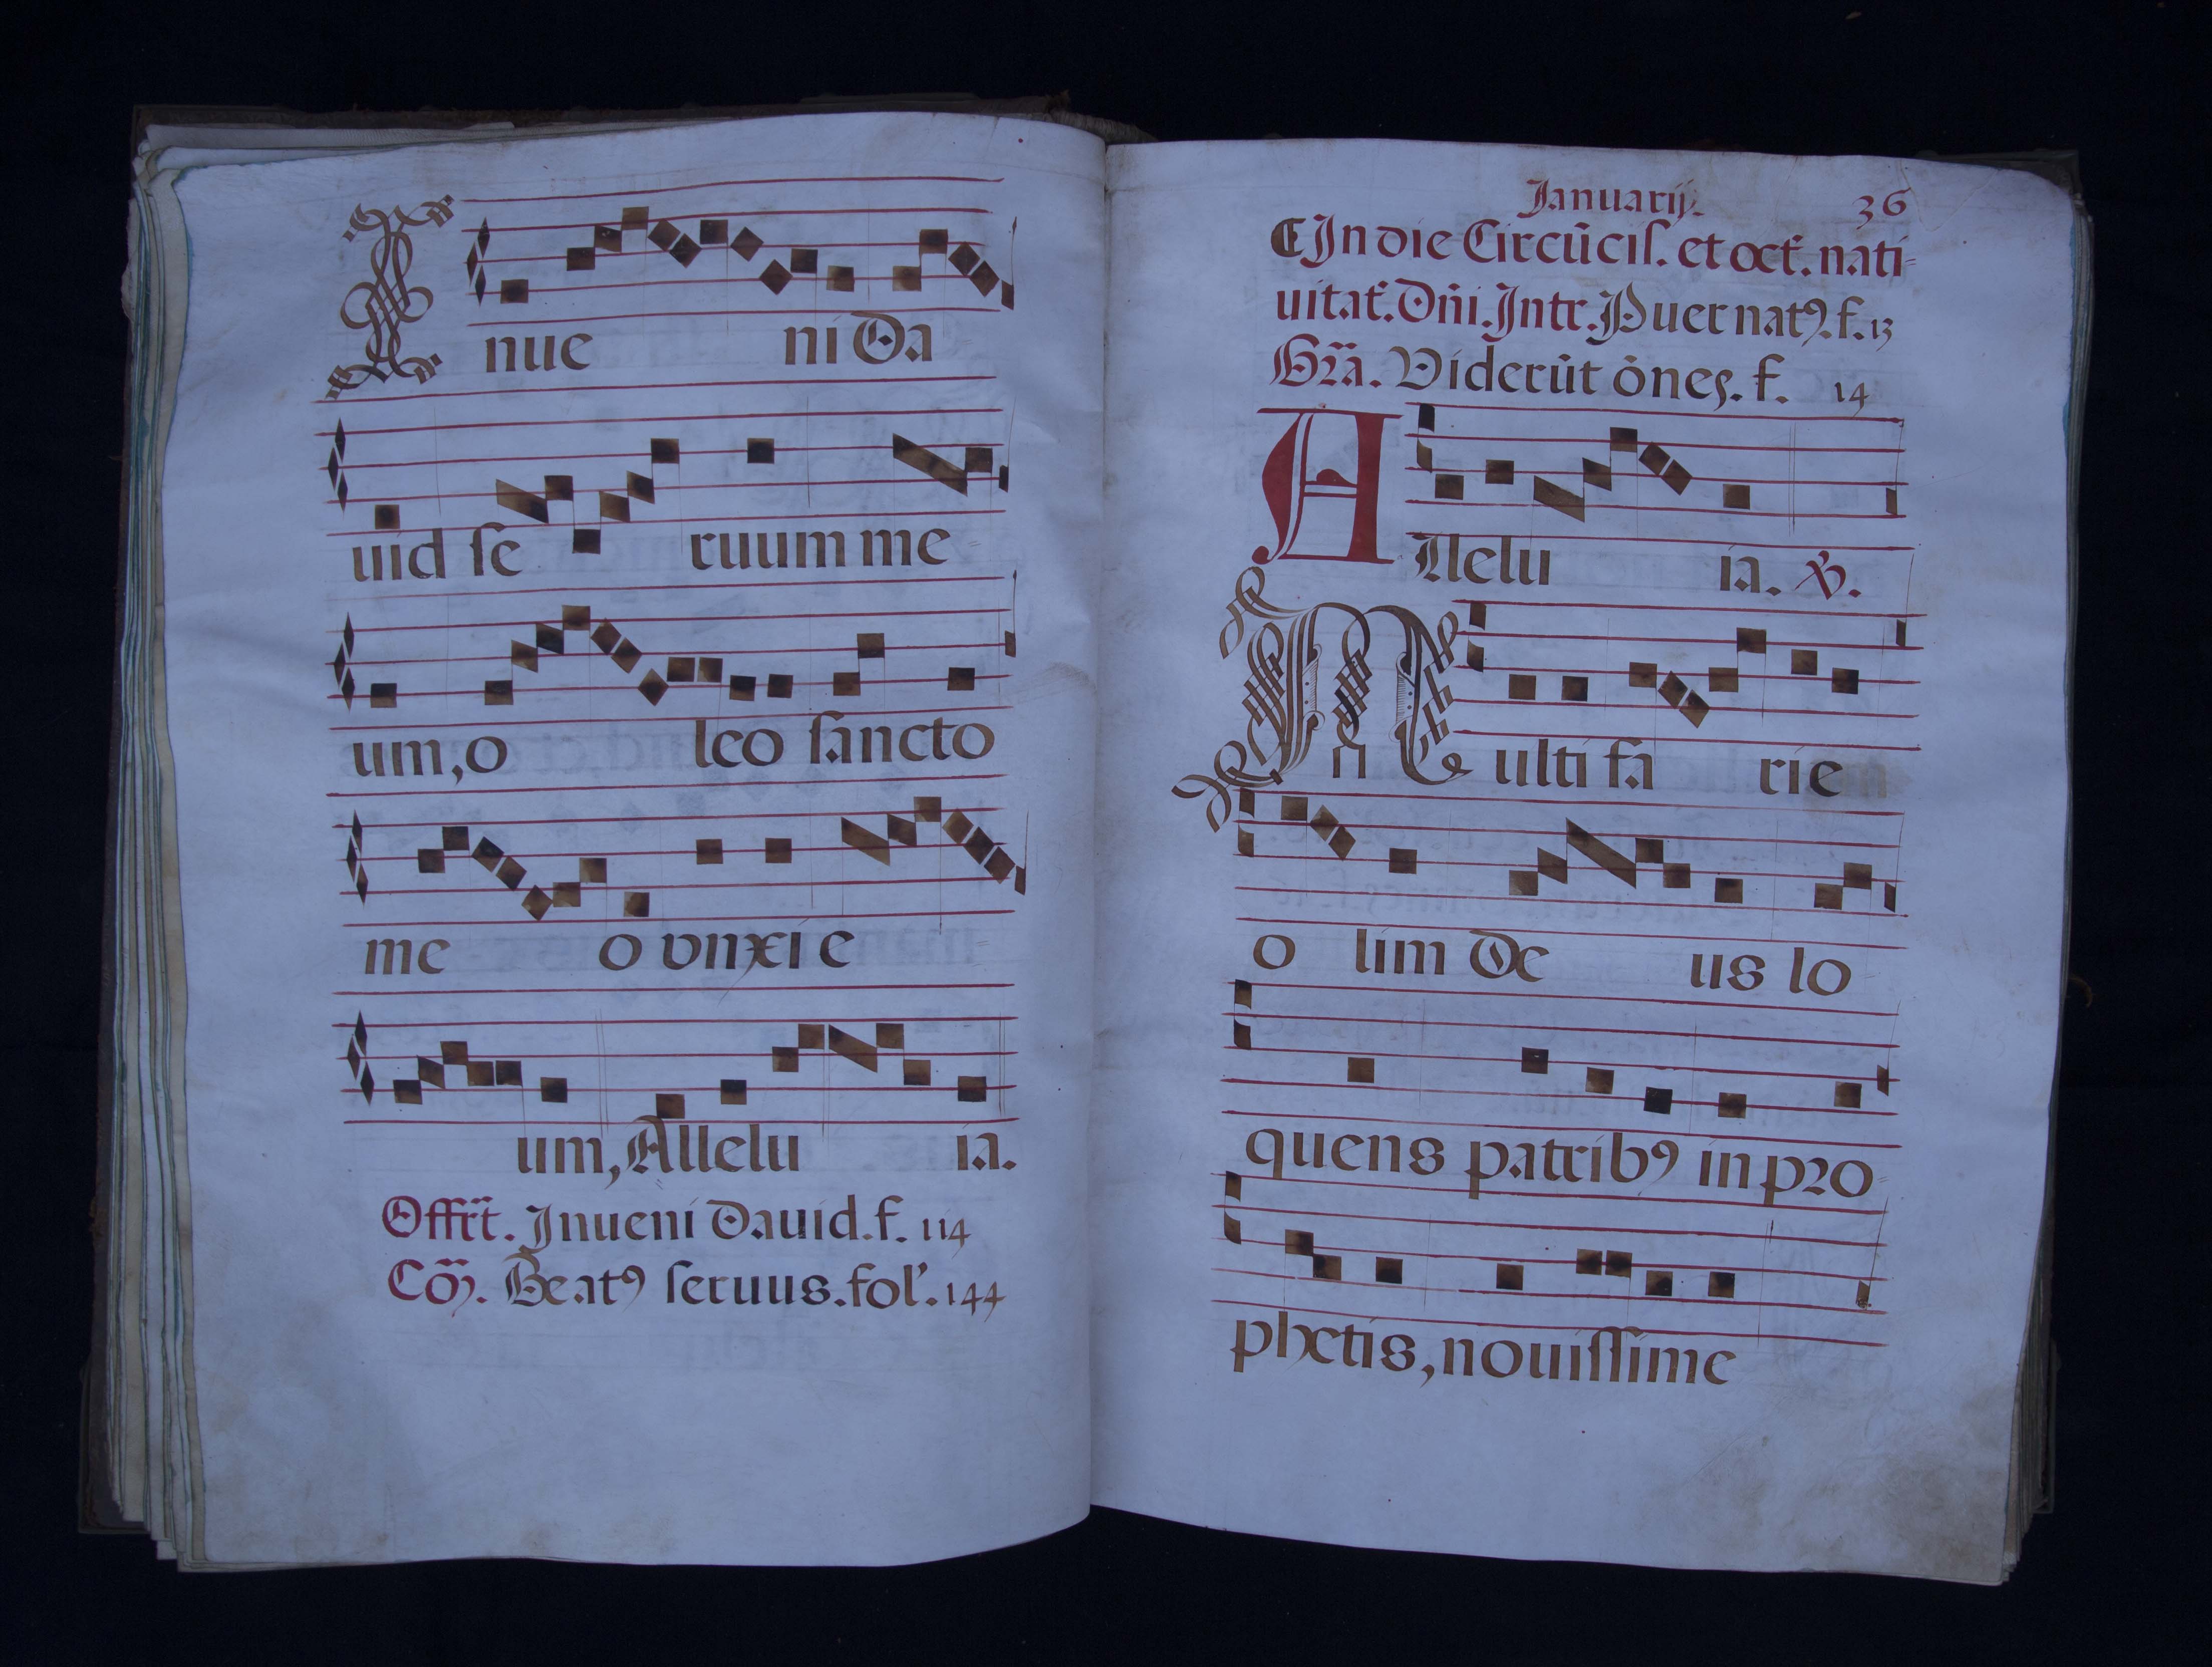 Inue ni Da
uid se ruum me
um, o leo sancto
me o vnxi e
um, Allelu ia.
Offrt̃. Inueni Dauid. f. 114
Cõ. Beatꝰ seruus. fol. 144
Januarij. 36
In die Circũcis. et oct̃. nati
uitat̃. Dñi. Intr. Puer natꝰ. f. 13
Gra᷉. Viderũt õnes. f. 14
Allelu ia. ℣.
Multi fa rie
o lim De us lo
quens patribꝰ in pro
phetis, nouissime